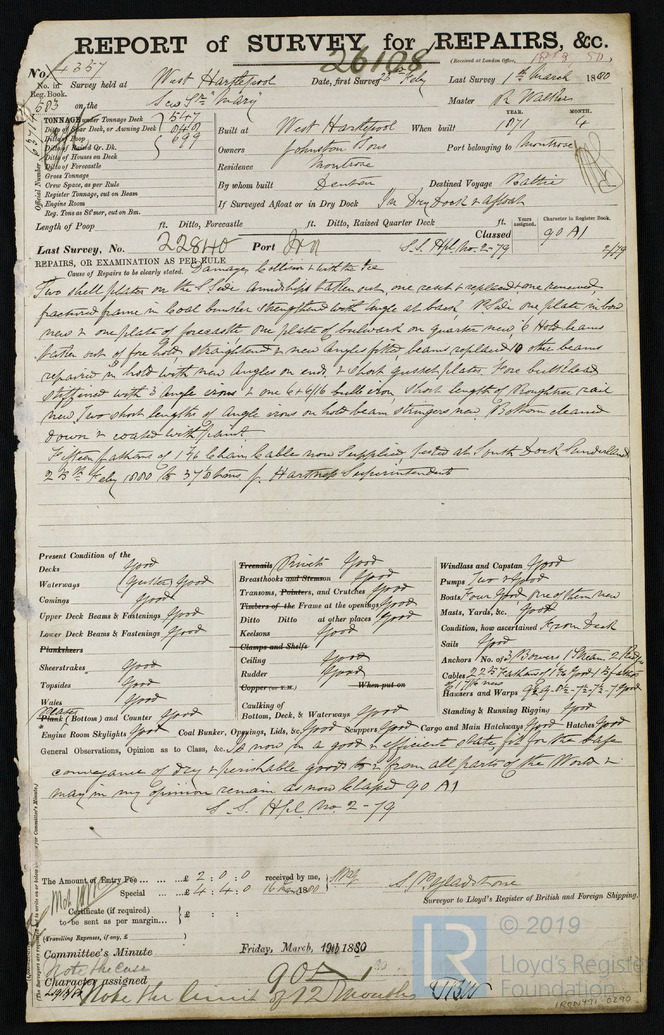 REPORT of SURVEY for REPAIRS, &c.
26108
(Received at London Office,
No 4337
No. in Survey held at West Hartlepool Date, first Survey Feby Last Survey 1st March 1880
Reg. Book.
583 on the Sew Str "Mary" Master R Walker
TONNAGE under Tonnage Deck 547
Ditto of Spar Deck, or Awning Deck
Ditto of Poop 699
Ditto of Raised Qr. Dk.
Ditto of Houses on Deck
Ditto of Forecastle
Gross Tonnage
Crew Space, as per Rule
Register Tonnage, cut on Beam
Engine Room
Reg. Tons as St'mer, cut on Bm.
Official Number
YEAR. MONTH.
Built at West Hartlepool When built 1871 4
Owners Johnston & Sons Port belonging to Montrose
Residence Montrose
By whom built Denton Destined Voyage Baltic
If Surveyed Afloat or in Dry Dock In Dry Dock & afloat
Length of Poop ft. Ditto, Forecastle ft. Ditto, Raised Quarter Deck ft.
Years assigned. Character in Register Book.
Classed 90 A1
2/79
Last Survey, No. 22840 Port S.S. Hpl. No. 2-79
REPAIRS, OR EXAMINATION AS PER RULE
Cause of Repairs to be clearly stated. Damages Collision & with the Ice
Two shell plates on the S. Side amidships taken out, one reset & replaced & one renewed
fractured frame in Coal bunker strengthened with angle at back. P. Side one plate in bow
new & one plate of forecastle one plate of bulwark on quarter new 6 Hold beams
taken out of fore hold, straightened & new angles fitted, beams replaced 10 other beams
repaired in hold with new angles on ends & short gusset plates. Fore bulkhead
stiffened with 3 angle irons & one 6+6/16 bulb iron, short length of Roughtree rail
new Two short lengths of angle irons on hold beam stringers new. Bottom cleaned
down & coated with paint.
Fifteen fathoms of 1 7/16 Chain Cable now Supplied, tested at South Dock Sunderland
25th Feby 1880 to 37 tons p. Hartnop Superintendent
Present Condition of the
Decks Good
Waterways (Gutter) Good
Comings Good
Upper Deck Beams & Fastenings Good
Lower Deck Beams & Fastenings Good
Planksheers
Sheerstrakes Good
Topsides Good
Wales Good
Plank (Bottom) and Counter Good
Treenails Rivets Good
Breasthooks and Stemson Good
Transoms, Pointers, and Crutches Good
Timbers of the Frame at the openings Good
Ditto Ditto at other places Good
Keelsons Good
Clamps and Shelfs
Ceiling Good
Rudder Good
Copper (or Y.M.) When put on
Caulking of
Bottom, Deck, & Waterways Good
Windlass and Capstan Good
Pumps Two & Good
Boats Four Good one of them new
Masts, Yards, &c. Good
Condition, how ascertained From Deck
Sails Good
Anchors No. of 3 Bowers 1 Stream 2 Kedges
Cables 225 Fathoms of 1 7/16 Good
Hawsers and Warps Good
Standing & Running Rigging Good
Engine Room Skylights Good Coal Bunker, Openings, Lids, &c. Good Scuppers Good Cargo and Main Hatchways Good Hatches Good
General Observations, Opinion as to Class, &c. Is now in a good & efficient state fit for the safe
conveyance of dry & perishable goods to & from all parts of the World &
may in my opinion remain as now Classed 90 A1
S. S. Hpl. No 2-79
The Amount of Entry Fee ... ... £ 2 : 0 : 0 received by me,
Special ... ... £ 4 : 4 : 0 1880
Certificate (if required) £ : :
to be sent as per margin...
(Travelling Expenses, if any, £ )
Surveyor to Lloyd's Register of British and Foreign Shipping.
Committee's Minute Friday, March, 19th 1880
Note the Case
Character assigned 90 A1
Note the limit of 12 Months
© 2019
LR
Lloyd's Register
Foundation